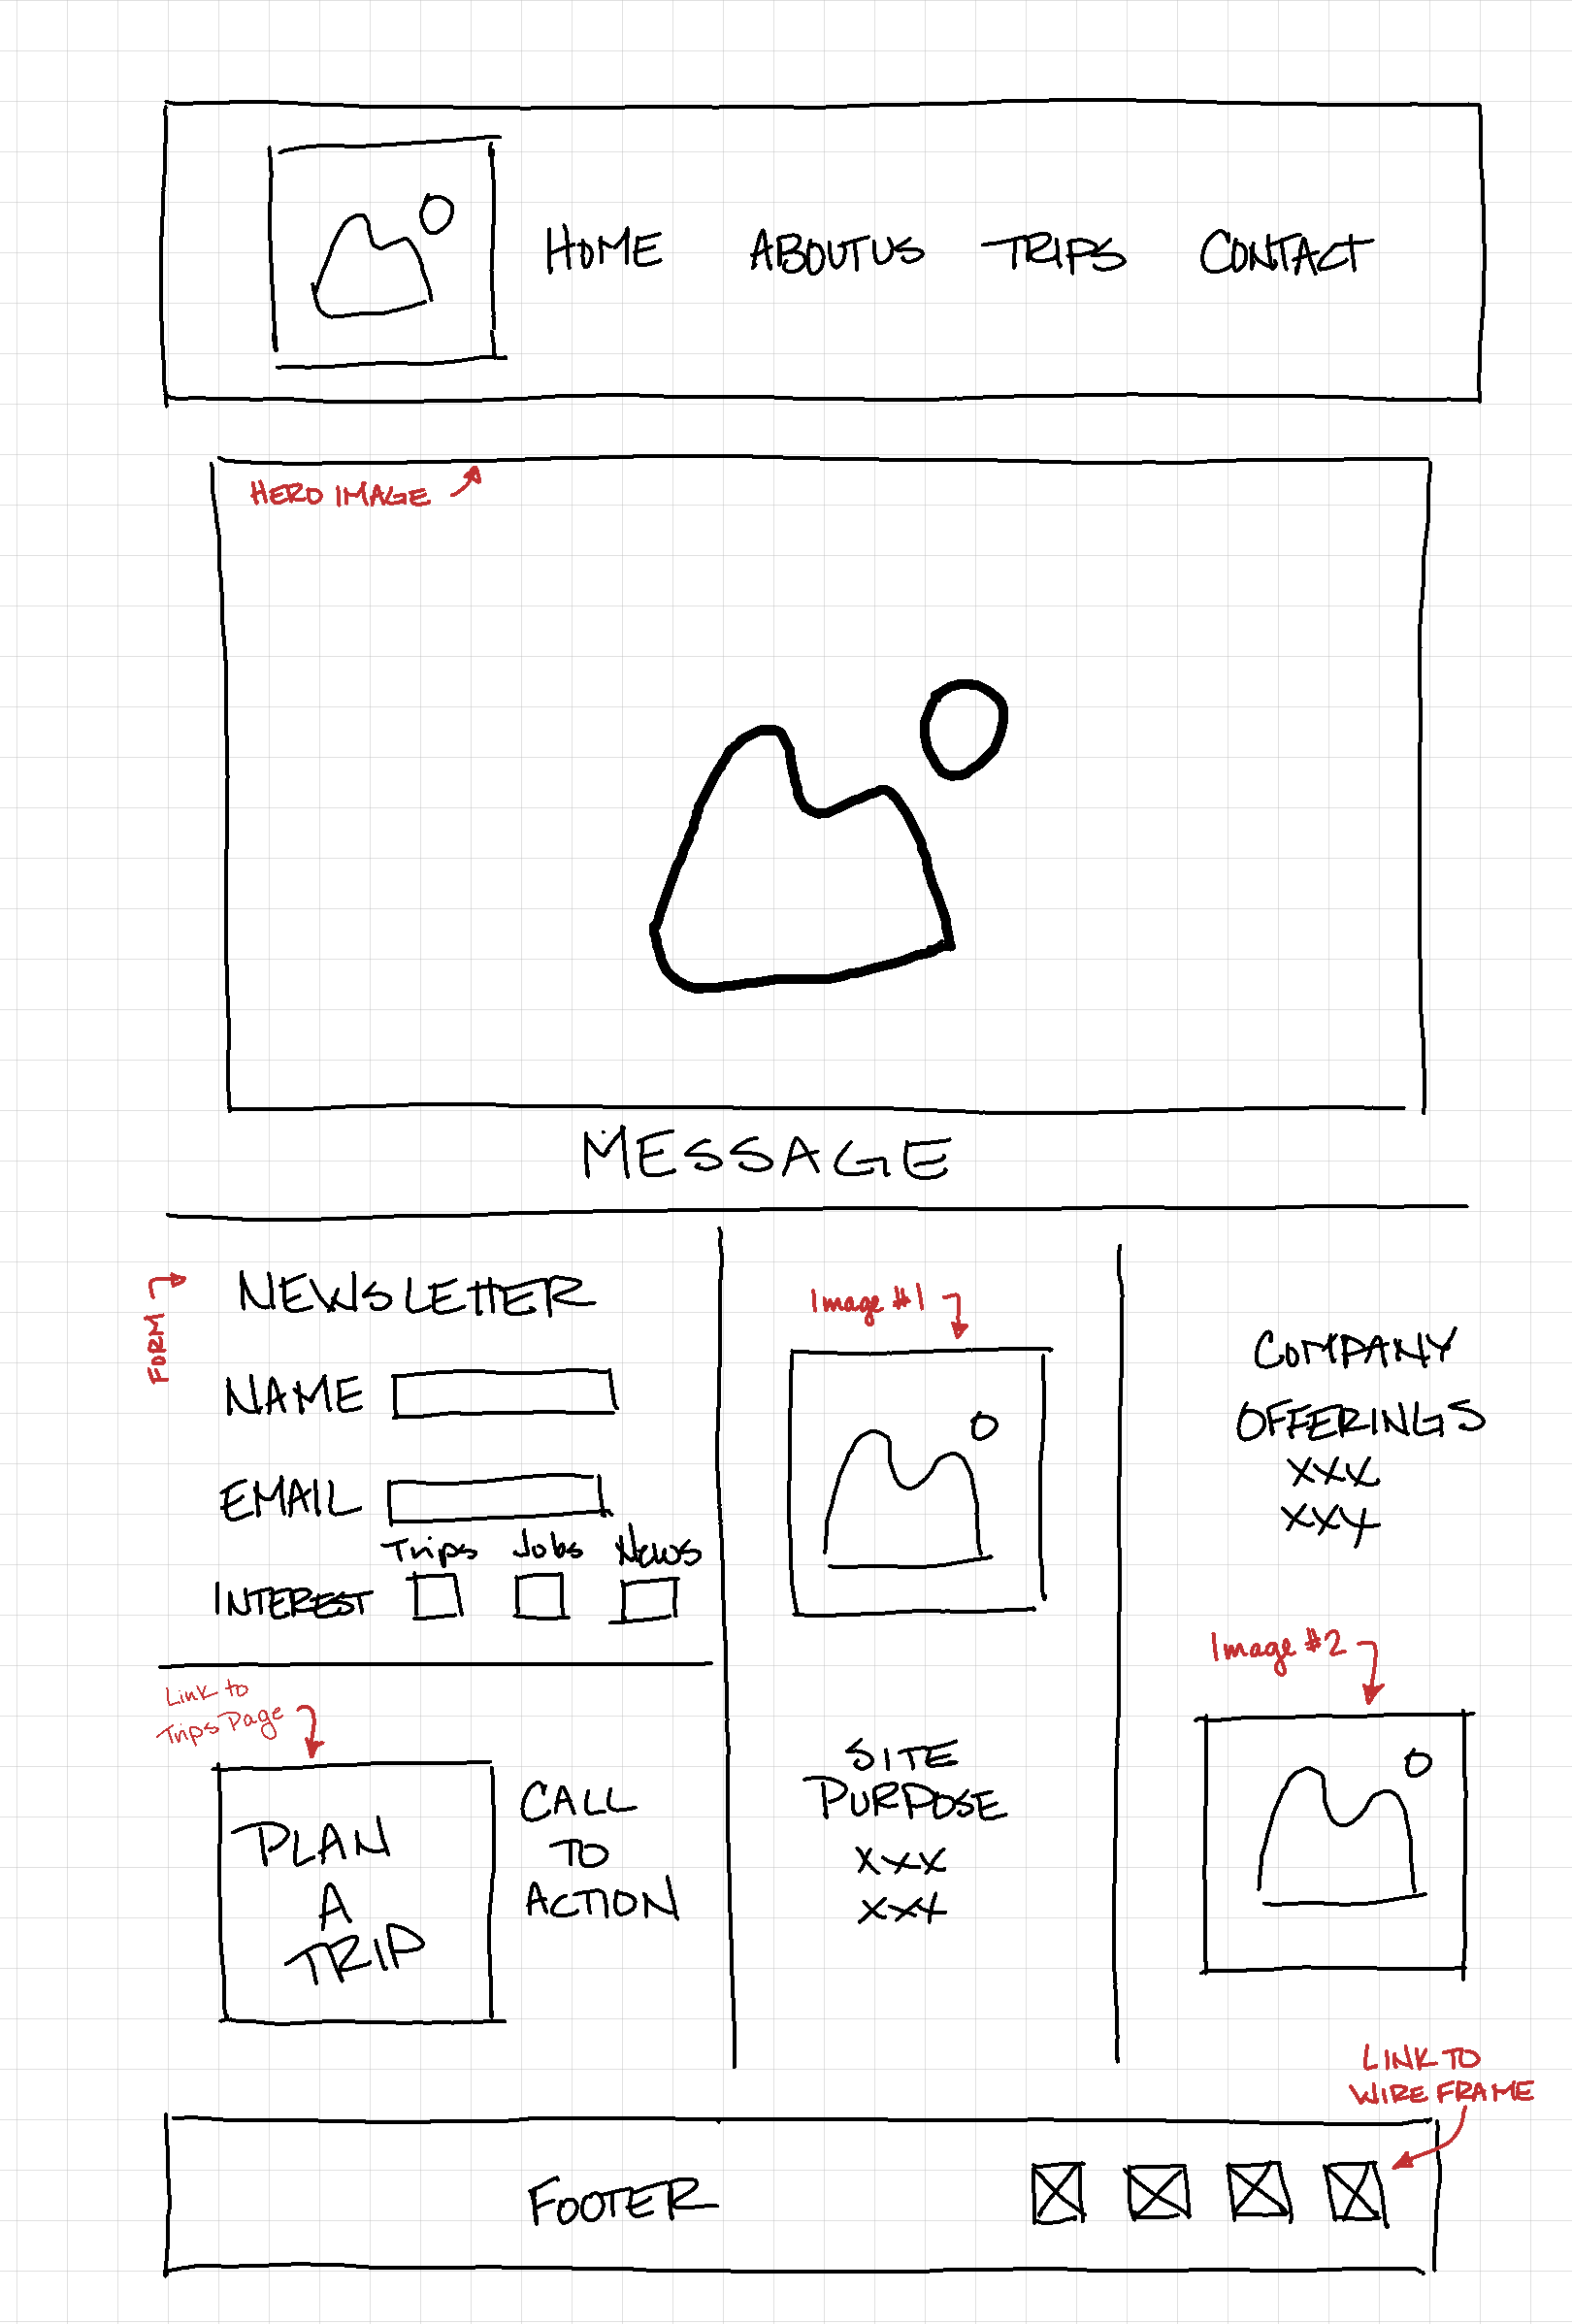 HOME ABOUT US TRIPS CONTACT
HERO IMAGE
MESSAGE
FORM
NEWSLETTER
NAME
EMAIL
Trips Jobs News
INTEREST
Link to
Trips Page
PLAN
A
TRIP
CALL
TO
ACTION
Image #1
SITE
PURPOSE
xxx
xxx
COMPANY
OFFERINGS
xxx
xxx
Image #2
LINK TO
WIRE FRAME
FOOTER